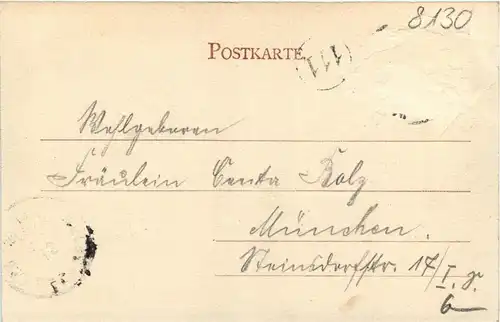 8130
POSTKARTE.
(111)
Wohlgeboren
Fräulein Centa Bolz
München.
Steinsdorfstr. 17/I. r.
6